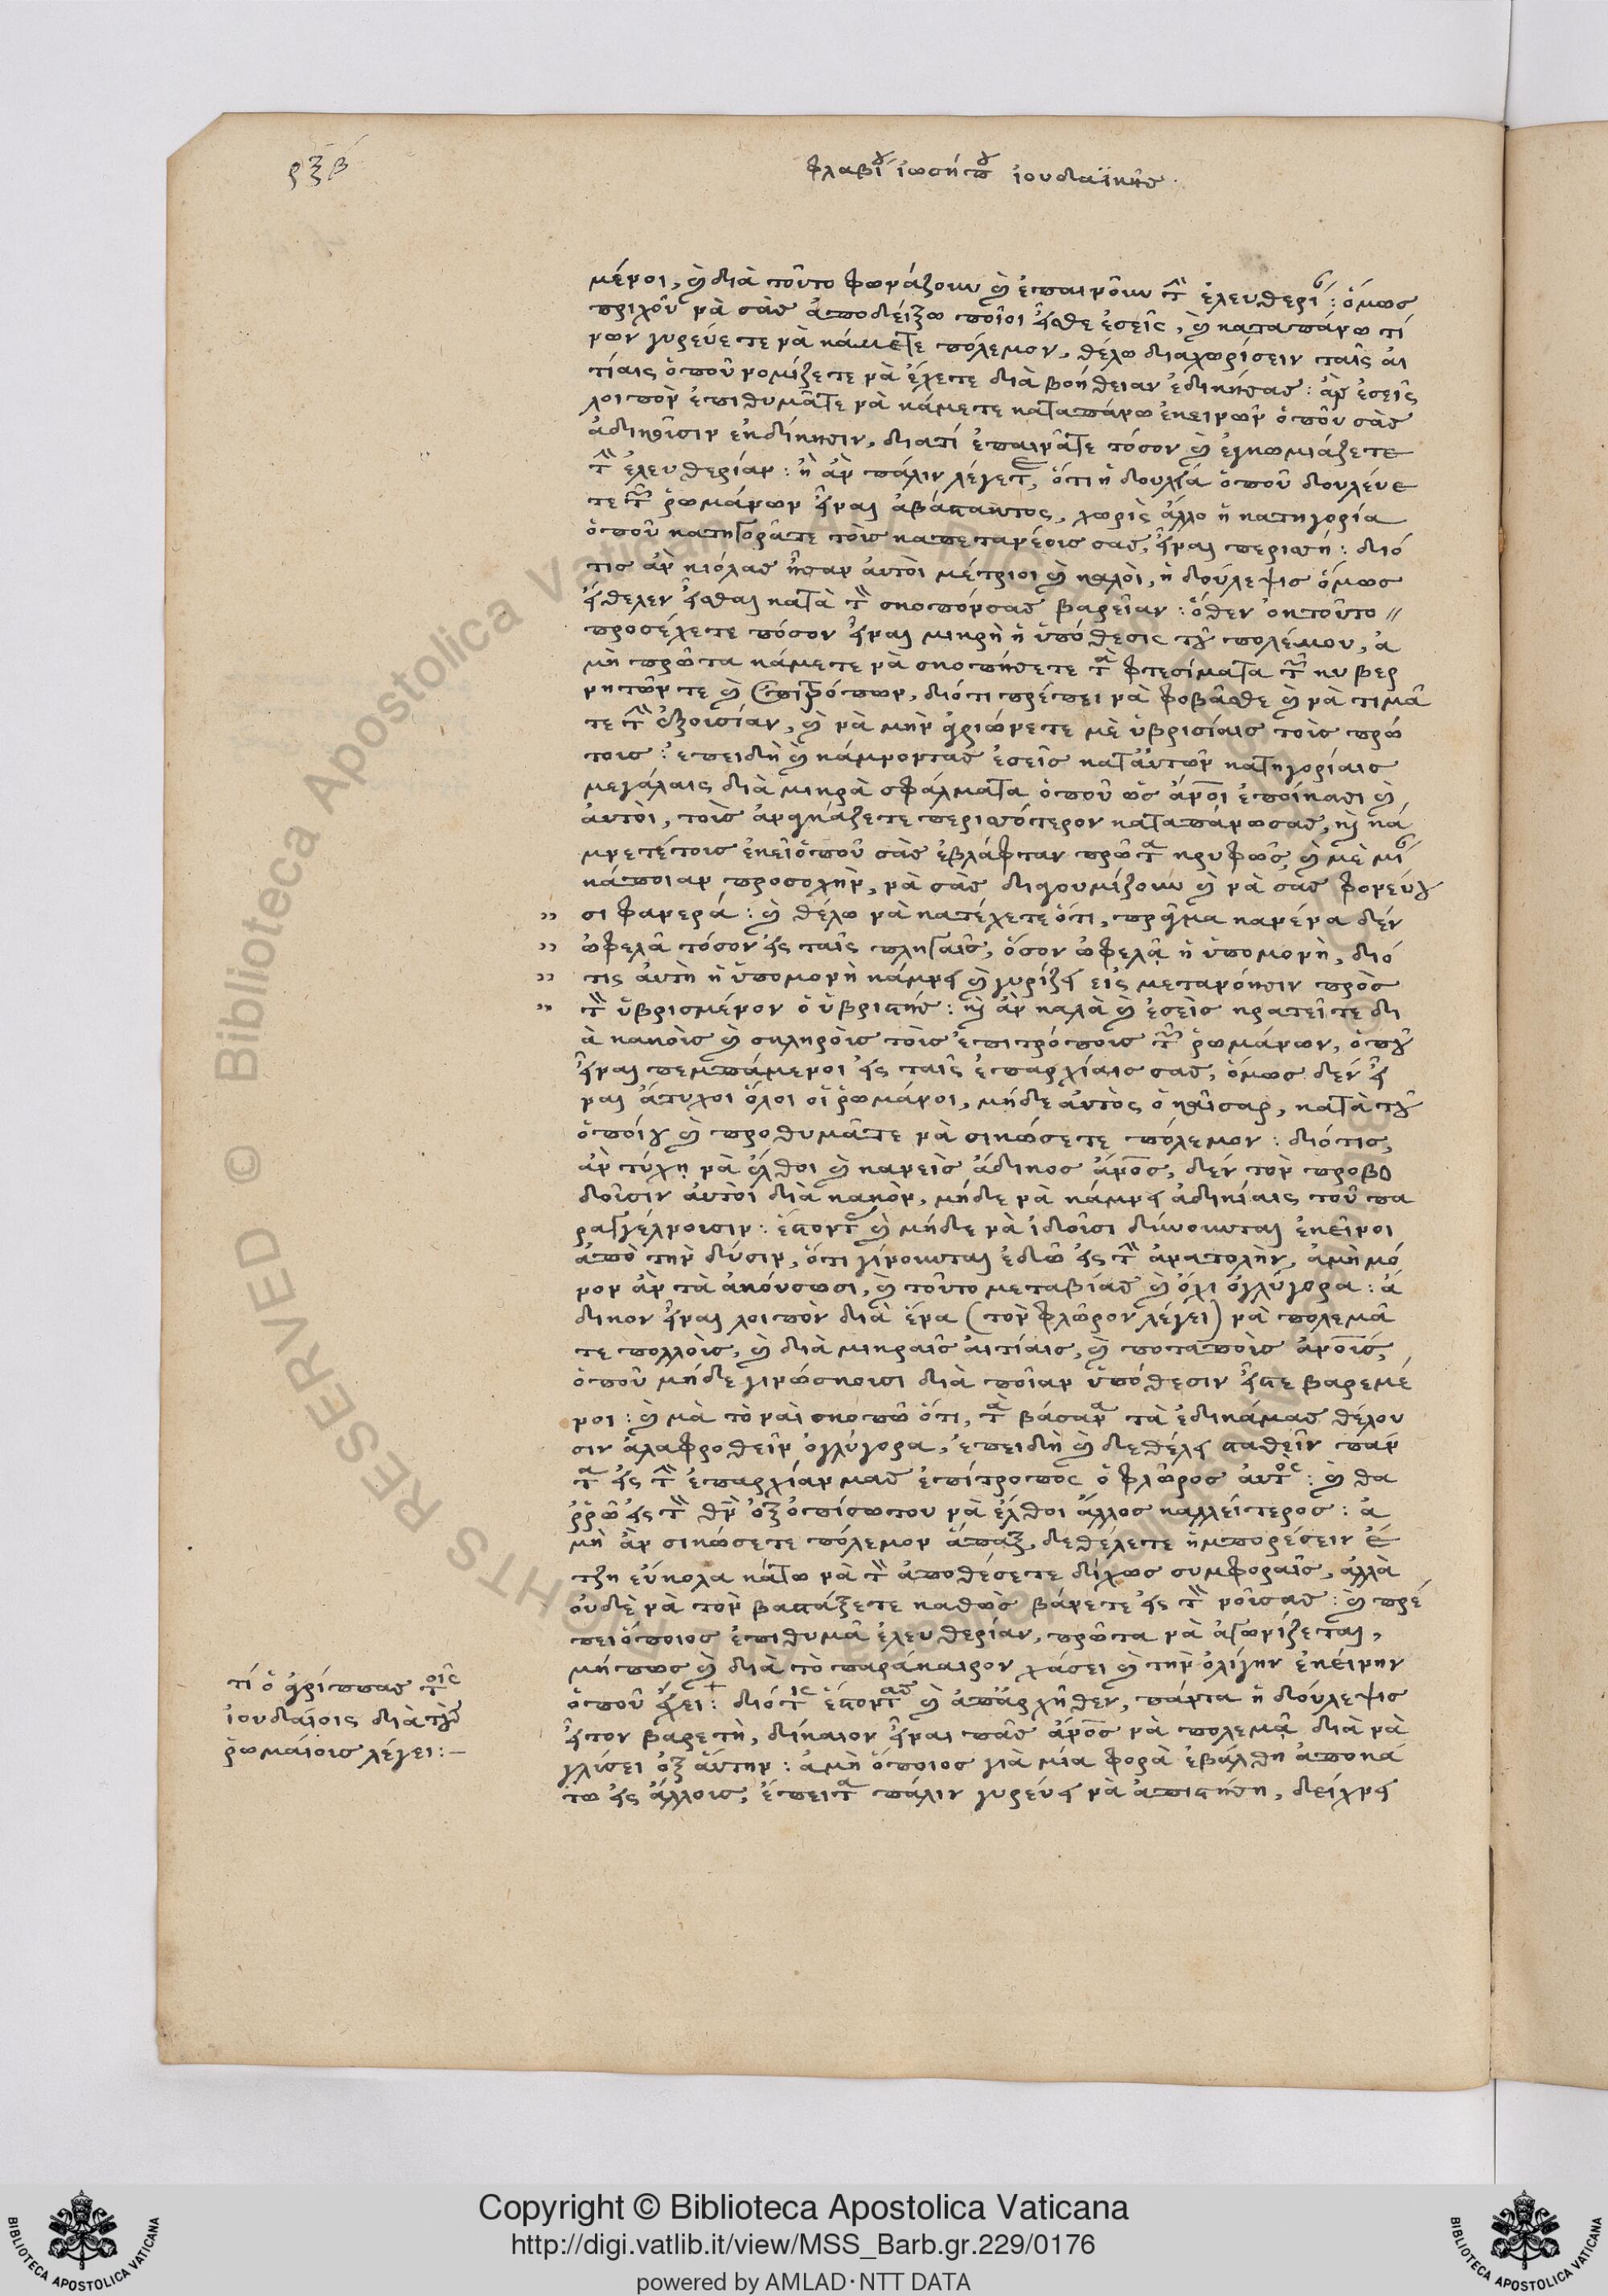 ρξβ
φλαβίου ἰωσήπου ἰουδαϊκῆς
μένοι, καὶ διὰ τοῦτο φωνάζουν καὶ ἐπαινοῦν τὴν ἐλευθερίαν: ὅμως
πριχοῦ νὰ σᾶς ἀποδείξω ποῖοι εἶσθε ἐσεῖς, καὶ καταπάνω τί
νων γυρεύετε νὰ κάμετε πόλεμον, θέλω διαχωρίσειν ταῖς αἰ
τίαις ὁποῦ νομίζετε νὰ ἔχετε διὰ βοήθειαν ἐδικήσας: ἂν ἐσεῖς
λοιπὸν ἐπιθυμᾶτε νὰ κάμετε καταπάνω ἐκεινῶν ὁποῦ σᾶς
ἀδικοῦσιν ἐκδίκησιν, διατί ἐπαινᾶτε τόσον καὶ ἐγκωμιάζετε
τὴν ἐλευθερίαν: ἢ ἂν πάλιν λέγετε, ὅτι ἡ δουλεία ὁποῦ δουλεύε
τε τῶν ῥωμάνων εἶναι ἀβάσταντος, χωρὶς ἄλλο ἡ κατηγορία
ὁποῦ κατηγορᾶτε τοὺς καπετανέους σας, εἶναι περισσή: διό
τις ἂν κιόλας ἦσαν αὐτοὶ μέτριοι καὶ καλοὶ, ἡ δούλεψις ὅμως
ἤθελεν εἶσθαι κατὰ τὸν σκοπόνσας βαρεῖαν: ὅθεν εἰς τοῦτο
προσέχετε πόσον εἶναι μικρὴ ἡ ὑπόθεσις τοῦ πολέμου, ἀ
μὴ πρῶτα κάμετε νὰ σκοπήσετε τὰ φτεσίματα τῶν κυβερ
νητῶν τε καὶ ἐπιτρόπων, διότι πρέπει νὰ φοβᾶσθε καὶ νὰ τιμᾶ
τε τὴν ἐξουσίαν, καὶ νὰ μὴν ἀγριώνετε μὲ ὑβρισίαις τοὺς πρώ
τους: ἐπειδὴ καὶ κάμνοντας ἐσεῖς κατ' αὐτῶν κατηγορίαις
μεγάλαις διὰ μικρὰ σφάλματα ὁποῦ ὡς ἄνθρωποι ἐποίκασι καὶ
αὐτοὶ, τοὺς ἀναγκάζετε περισσότερον καταπάνωσας, καὶ κά
μνετέτους ἐκεῖ ὁποῦ σᾶς ἐβλάφταν πρῶτα κρυφῶς, καὶ μὲ μίαν
κάποιαν προσοχὴν, νὰ σᾶς διαγουμίζουν καὶ νὰ σᾶς φονεύου
σι φανερά: καὶ θέλω νὰ κατέχετε ὅτι, πρᾶγμα κανένα δέν
ὠφελᾶ τόσον εἰς ταῖς πληγαῖς, ὅσον ὠφελᾷ ἡ ὑπομονὴ, διό
τις αὐτὴ ἡ ὑπομονὴ κάμνει καὶ γυρίζει εἰς μετανόησιν πρὸς
τὸν ὑβρισμένον ὁ ὑβριστής: καὶ ἂν καλὰ καὶ ἐσεῖς κρατεῖτε δι
ὰ κακοὺς καὶ σκληροὺς τοὺς ἐπιτρόπους τῶν ῥωμάνων, ὁποῦ
εἶναι πεμπάμενοι εἰς ταῖς ἐπαρχίαις σας, ὅμως δέν εἶ
ναι ἄτυχοι ὅλοι οἱ ῥωμάνοι, μήδε αὐτὸς ὁ καῖσαρ, κατὰ τοῦ
ὁποίου καὶ προθυμᾶτε νὰ σικώσετε πόλεμον: διότις,
ἂν τύχῃ νὰ ἔλθοι καὶ κανεὶς ἄδικος ἄνθρωπος, δέν τὸν προβο
δοῦσιν αὐτοὶ διὰ κακὸν, μήδε νὰ κάμνει ἀδικίαις τοῦ πα
ραγγέλνουσιν: ἔστοντας καὶ μήδε νὰ ἰδοῦσι δύνουνται ἐκεῖνοι
ἀπὸ τὴν δύσιν, ὅτι γίνουνται ἐδῶ εἰς τὴν ἀνατολὴν, ἀμὴ μό
νον ἂν τὰ ἀκούσωσι, καὶ τοῦτο μεταβίας καὶ ὄχι ὀγλύγορα: ἄ
δικον εἶναι λοιπὸν διὰ ἕνα (τὸν φλῶρον λέγει) νὰ πολεμᾶ
τε πολλοὺς, καὶ διὰ μικραῖς αἰτίαις, καὶ ποταποὺς ἀνθρώπους,
ὁποῦ μήδε γινώσκουσι διὰ ποῖαν ὑπόθεσιν εἶστε βαρεμέ
νοι: καὶ μὰ τὸ ναὶ σκοπῶ ὅτι, τὰ βάσανα τὰ ἐδικάμας θέλου
σιν ἀλαφροθεῖν ὀγλύγορα, ἐπειδὴ καὶ δεθέλει σταθεῖν πάν
τα εἰς τὴν ἐπαρχίανμας ἐπίτροπος ὁ φλῶρος αὐτὸς: καὶ θα
ῤῥῶ εἰς τὸν θεὸν ἐξοπίσωτου νὰ ἔλθοι ἄλλος καλλείτερος: ἀ
μὴ ἂν σικώσετε πόλεμον ἅπαξ, δεθέλετε ἠμπορέσειν ἔ
τζη εὔκολα κάτω νὰ τὸν ἀποθέσετε δίχως συμφοραῖς, ἀλλὰ
οὐδὲ νὰ τὸν βαστάξετε καθὼς βάνετε εἰς τὸν νοῦσας: καὶ πρέ
πει ὁποῖος ἐπιθυμᾶ ἐλευθερίαν, πρῶτα νὰ ἀγωνίζεται,
μήπως καὶ διὰ τὸ παράκαιρον χάσει καὶ τὴν ὀλίγην ἐκείνην
ὁποῦ ἔχει: διότις ἔστοντας καὶ ἀπάρχῆθεν, πάντα ἡ δούλεψις
εἶτον βαρετὴ, δίκαιον εἶναι πᾶς ἄνθρωπος νὰ πολεμᾷ διὰ νὰ
γλίσει ἐξ αὔτην: ἀμὴ ὁποῖος γιὰ μία φορὰ ἐβάλθη ἀποκά
τω εἰς ἄλλους, ἔπειτα πάλιν γυρεύει νὰ ἀπιστήσῃ, δείχνει
τί ὁ ἀγρίππας τοῖς
ἰουδαίοις διὰ τοὺς
ῥωμαίους λέγει:—
Copyright © Biblioteca Apostolica Vaticana
http://digi.vatlib.it/view/MSS_Barb.gr.229/0176
powered by AMLAD·NTT DATA